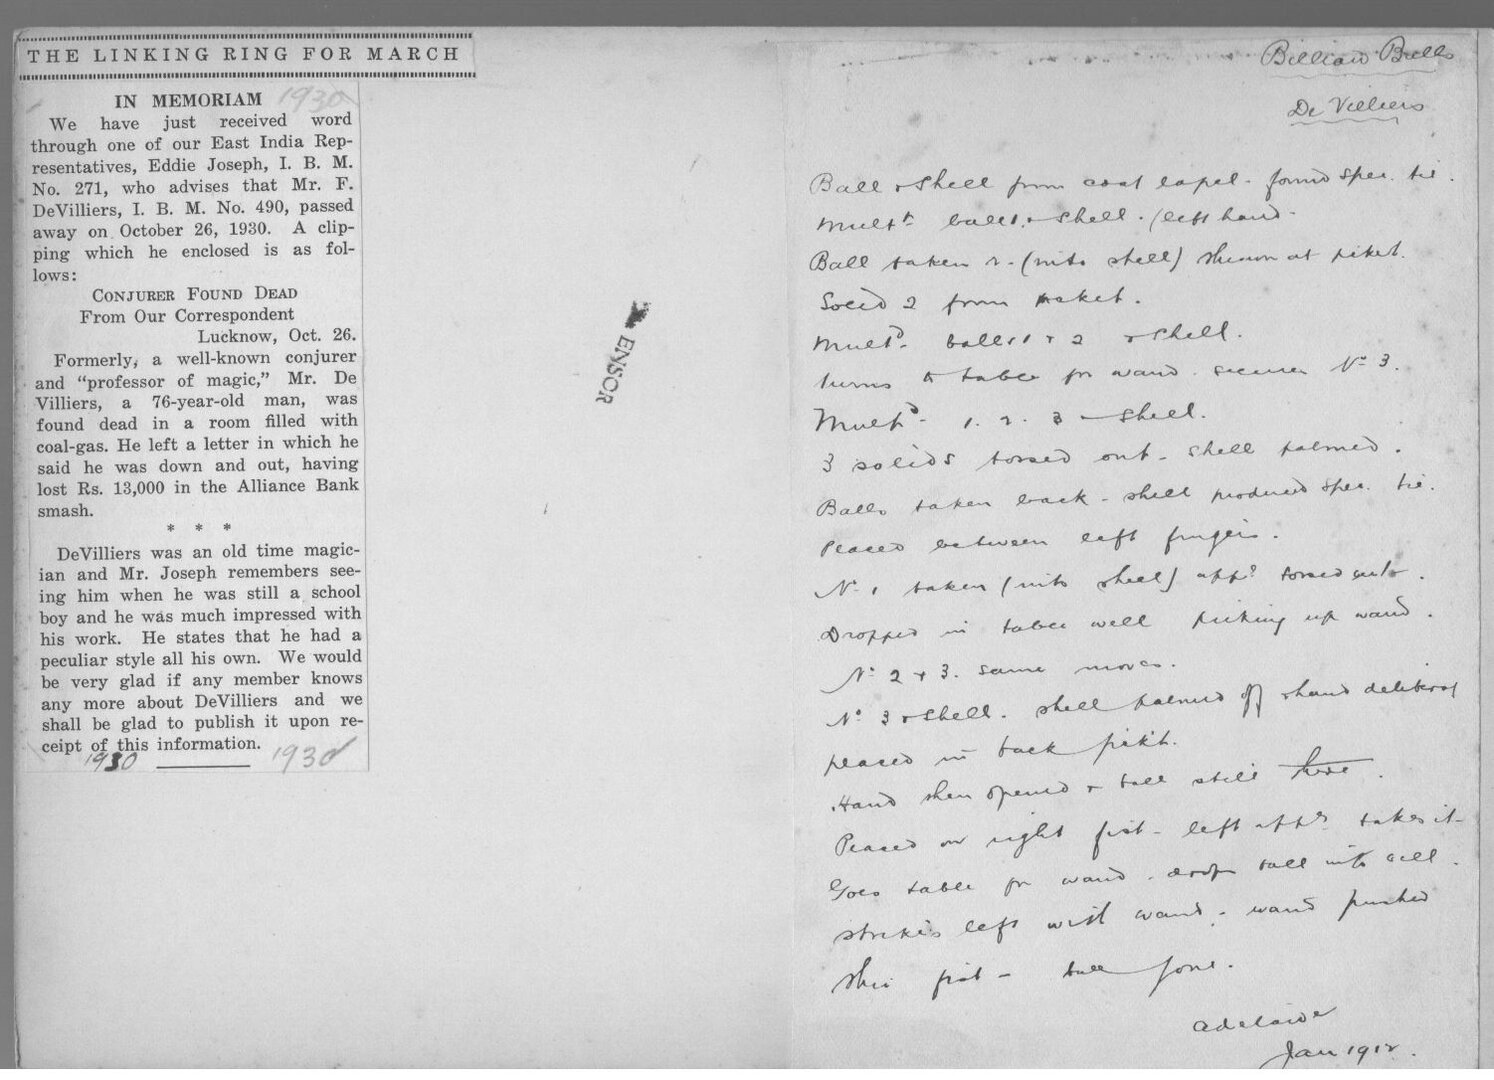 THE LINKING RING FOR MARCH
IN MEMORIAM 1930
We have just received word
through one of our East India Rep-
resentatives, Eddie Joseph, I. B. M.
No. 271, who advises that Mr. F.
DeVilliers, I. B. M. No. 490, passed
away on October 26, 1930. A clip-
ping which he enclosed is as fol-
lows:
CONJURER FOUND DEAD
From Our Correspondent
Lucknow, Oct. 26.
Formerly, a well-known conjurer
and "professor of magic," Mr. De
Villiers, a 76-year-old man, was
found dead in a room filled with
coal-gas. He left a letter in which he
said he was down and out, having
lost Rs. 13,000 in the Alliance Bank
smash.
* * *
DeVilliers was an old time magic-
ian and Mr. Joseph remembers see-
ing him when he was still a school
boy and he was much impressed with
his work. He states that he had a
peculiar style all his own. We would
be very glad if any member knows
any more about DeVilliers and we
shall be glad to publish it upon re-
ceipt of this information.
1930 1930
ENSOR
Billiard Balls
De Villiers
Ball & Shell from coat lapel - found
balls & Shell. (left hand -
Ball taken r - (into shell) shewn at
Solid 2 from
Multd - balls 1 & 2 & Shell.
turns to table for wand - secures No 3.
Multd - 1. 2. 3 - Shell.
3 solids tossed out - shell palmed.
Balls taken back - shell produced
Placed between left fingers.
No 1 taken (into shell) appd tossed
Dropped in table well picking up wand.
No 2 & 3. same moves.
No 3 & Shell. shell palmed off & hand
placed in
Hand then opened & ball still there.
Placed on right fist - left takes it -
Goes table for wand - drops ball into well.
strikes left with wand - wand pushed
thro fist - ball gone.
Adelaide
Jan 1912.